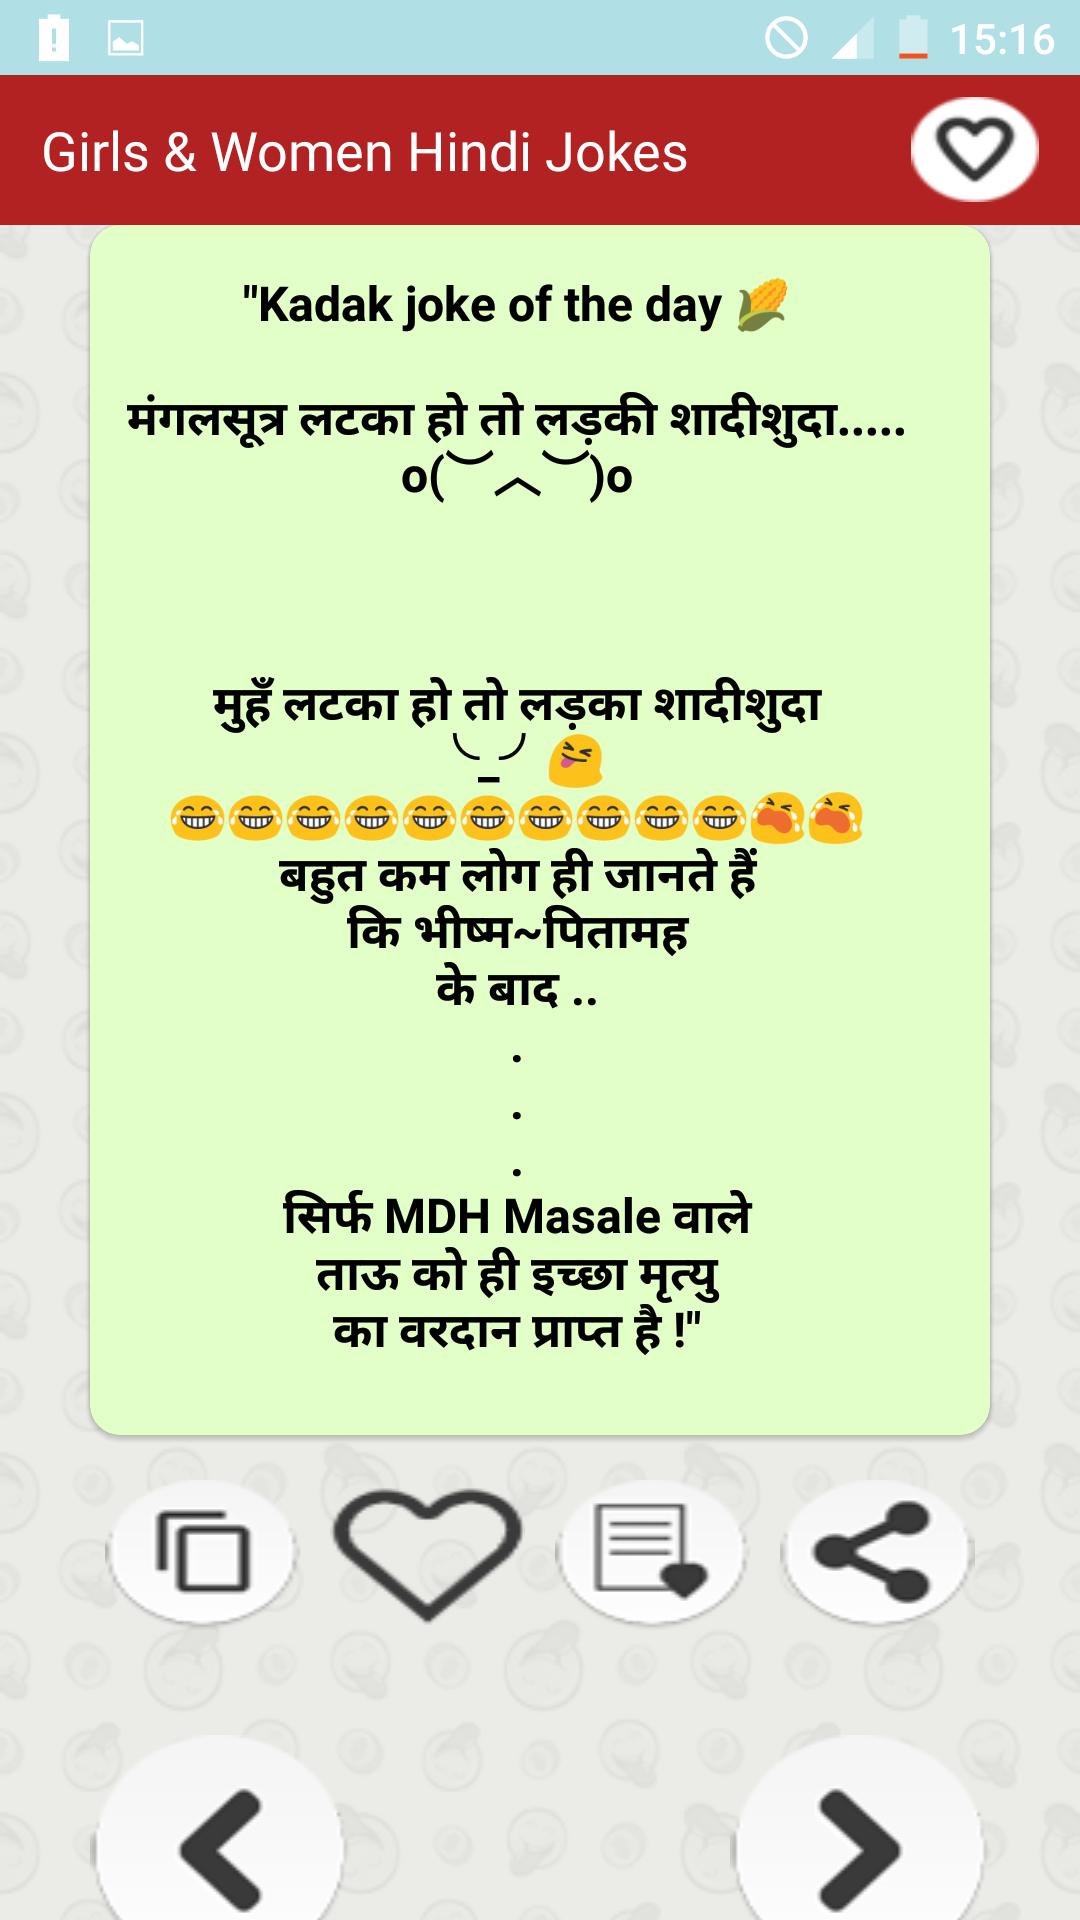 15:16
Girls & Women Hindi Jokes
"Kadak joke of the day 🌽
मंगलसूत्र लटका हो तो लड़की शादीशुदा.....
o(︶︿︶)o
मुहँ लटका हो तो लड़का शादीशुदा
╰_╯ 😝
😂😂😂😂😂😂😂😂😂😂😭😭
बहुत कम लोग ही जानते हैं
कि भीष्म~पितामह
के बाद ..
.
.
.
सिर्फ MDH Masale वाले
ताऊ को ही इच्छा मृत्यु
का वरदान प्राप्त है !"